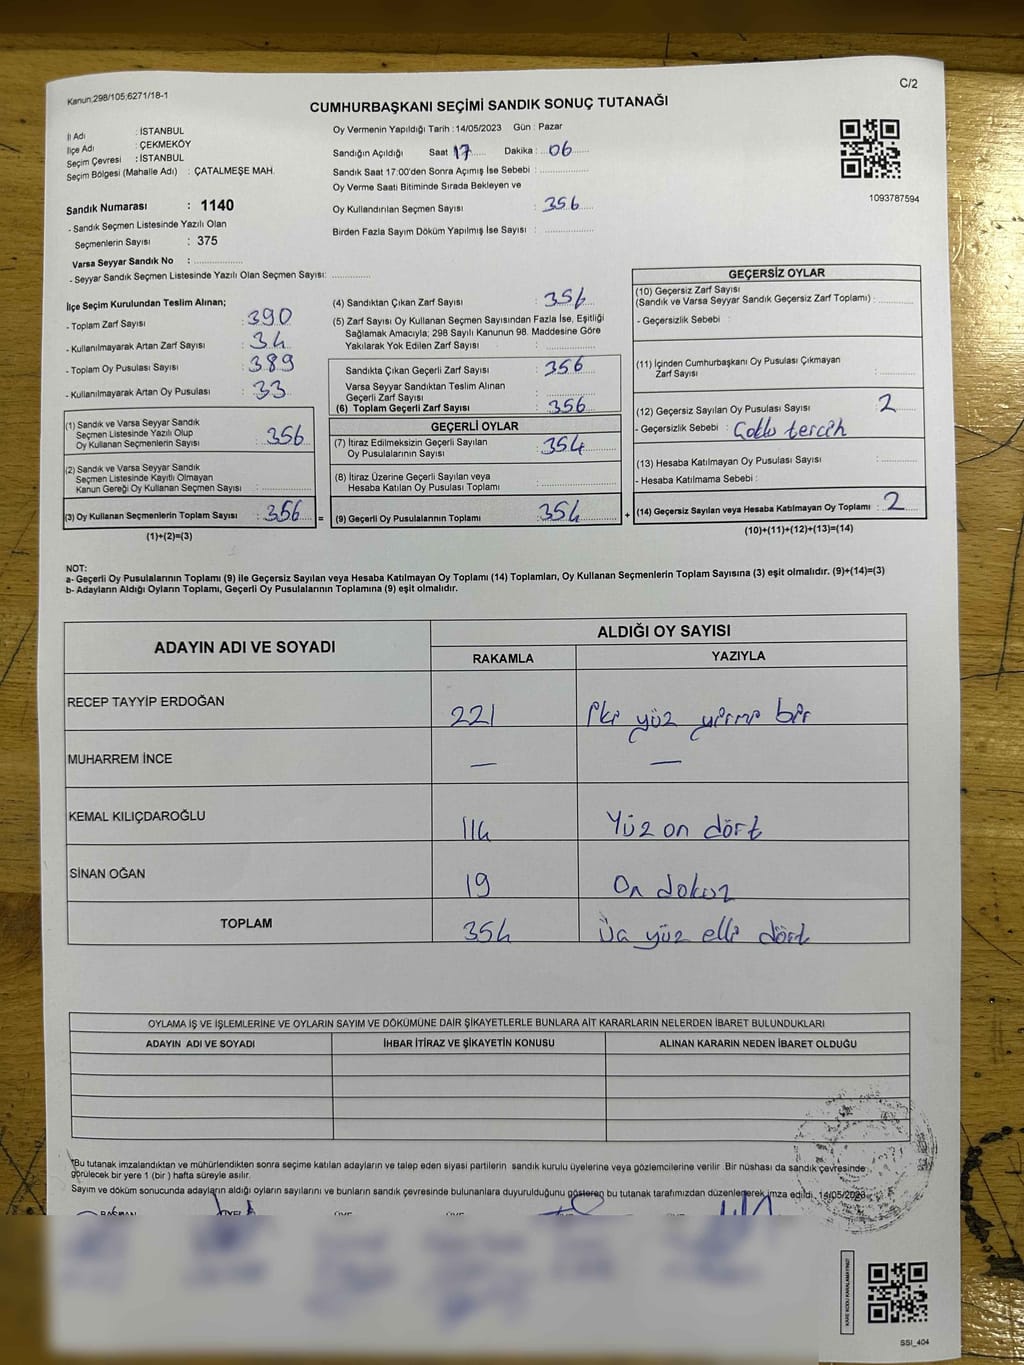 Kanun;298/105;6271/18-1
C/2
CUMHURBAŞKANI SEÇİMİ SANDIK SONUÇ TUTANAĞI
İl Adı : İSTANBUL
İlçe Adı : ÇEKMEKÖY
Seçim Çevresi : İSTANBUL
Seçim Bölgesi (Mahalle Adı) : ÇATALMEŞE MAH.
Sandık Numarası : 1140
- Sandık Seçmen Listesinde Yazılı Olan
Seçmenlerin Sayısı : 375
Varsa Seyyar Sandık No :
- Seyyar Sandık Seçmen Listesinde Yazılı Olan Seçmen Sayısı:
Oy Vermenin Yapıldığı Tarih : 14/05/2023 Gün : Pazar
Sandığın Açıldığı Saat 17 Dakika : 06
Sandık Saat 17:00'den Sonra Açımış İse Sebebi :
Oy Verme Saati Bitiminde Sırada Bekleyen ve
Oy Kullandırılan Seçmen Sayısı : 356
Birden Fazla Sayım Döküm Yapılmış İse Sayısı :
1093787594
İlçe Seçim Kurulundan Teslim Alınan;
- Toplam Zarf Sayısı : 390
- Kullanılmayarak Artan Zarf Sayısı : 34
- Toplam Oy Pusulası Sayısı : 389
- Kullanılmayarak Artan Oy Pusulası : 33
(1) Sandık ve Varsa Seyyar Sandık
Seçmen Listesinde Yazılı Olup
Oy Kullanan Seçmenlerin Sayısı : 356
(2) Sandık ve Varsa Seyyar Sandık
Seçmen Listesinde Kayıtlı Olmayan
Kanun Gereği Oy Kullanan Seçmen Sayısı :
(3) Oy Kullanan Seçmenlerin Toplam Sayısı : 356 =
(1)+(2)=(3)
(4) Sandıktan Çıkan Zarf Sayısı : 356
(5) Zarf Sayısı Oy Kullanan Seçmen Sayısından Fazla İse, Eşitliği
Sağlamak Amacıyla; 298 Sayılı Kanunun 98. Maddesine Göre
Yakılarak Yok Edilen Zarf Sayısı :
Sandıkta Çıkan Geçerli Zarf Sayısı : 356
Varsa Seyyar Sandıktan Teslim Alınan
Geçerli Zarf Sayısı :
(6) Toplam Geçerli Zarf Sayısı : 356
GEÇERLİ OYLAR
(7) İtiraz Edilmeksizin Geçerli Sayılan
Oy Pusulalarının Sayısı : 354
(8) İtiraz Üzerine Geçerli Sayılan veya
Hesaba Katılan Oy Pusulası Toplamı :
(9) Geçerli Oy Pusulalarının Toplamı : 354 +
GEÇERSİZ OYLAR
(10) Geçersiz Zarf Sayısı
(Sandık ve Varsa Seyyar Sandık Geçersiz Zarf Toplamı) :
- Geçersizlik Sebebi :
(11) İçinden Cumhurbaşkanı Oy Pusulası Çıkmayan
Zarf Sayısı :
(12) Geçersiz Sayılan Oy Pusulası Sayısı : 2
- Geçersizlik Sebebi : Çoklu tercih
(13) Hesaba Katılmayan Oy Pusulası Sayısı :
- Hesaba Katılmama Sebebi :
(14) Geçersiz Sayılan veya Hesaba Katılmayan Oy Toplamı : 2
(10)+(11)+(12)+(13)=(14)
NOT:
a- Geçerli Oy Pusulalarının Toplamı (9) ile Geçersiz Sayılan veya Hesaba Katılmayan Oy Toplamı (14) Toplamları, Oy Kullanan Seçmenlerin Toplam Sayısına (3) eşit olmalıdır. (9)+(14)=(3)
b- Adayların Aldığı Oyların Toplamı, Geçerli Oy Pusulalarının Toplamına (9) eşit olmalıdır.
ADAYIN ADI VE SOYADI
ALDIĞI OY SAYISI
RAKAMLA YAZIYLA
RECEP TAYYİP ERDOĞAN 221 iki yüz yirmi bir
MUHARREM İNCE — —
KEMAL KILIÇDAROĞLU 114 Yüz on dört
SİNAN OĞAN 19 On dokuz
TOPLAM 354 Üç yüz elli dört
OYLAMA İŞ VE İŞLEMLERİNE VE OYLARIN SAYIM VE DÖKÜMÜNE DAİR ŞİKAYETLERLE BUNLARA AİT KARARLARIN NELERDEN İBARET BULUNDUKLARI
ADAYIN ADI VE SOYADI İHBAR İTİRAZ VE ŞİKAYETİN KONUSU ALINAN KARARIN NEDEN İBARET OLDUĞU
*Bu tutanak imzalandıktan ve mühürlendikten sonra seçime katılan adayların ve talep eden siyasi partilerin sandık kurulu üyelerine veya gözlemcilerine verilir. Bir nüshası da sandık çevresinde
görülecek bir yere 1 (bir) hafta süreyle asılır.
Sayım ve döküm sonucunda adayların aldığı oyların sayılarını ve bunların sandık çevresinde bulunanlara duyurulduğunu gösteren bu tutanak tarafımızdan düzenlenerek imza edildi. 14/05/2023
KARE KODU KARALAMAYINIZ!
SSI_404